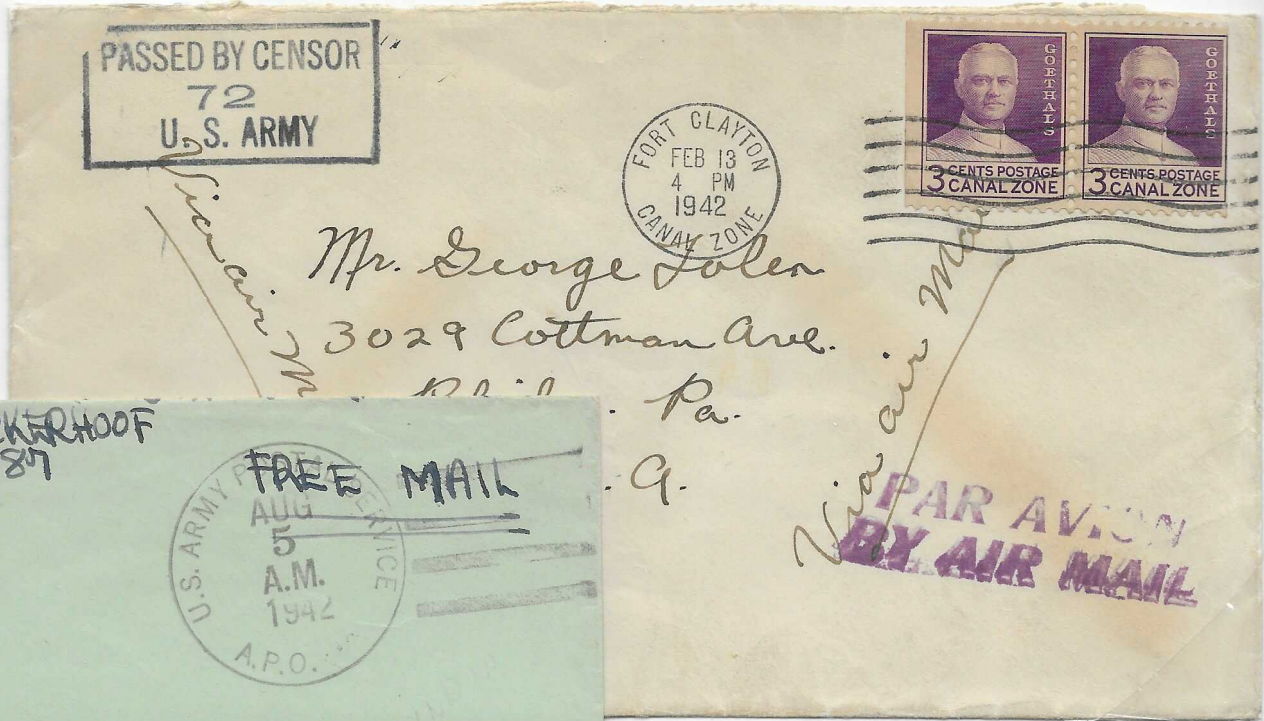 PASSED BY CENSOR
72
U. S. ARMY
FORT CLAYTON
FEB 13
4 PM
1942
CANAL ZONE
GOETHALS
3 CENTS POSTAGE
CANAL ZONE
GOETHALS
3 CENTS POSTAGE
CANAL ZONE
Via air M
Mr. George Tolen
3029 Cottman Ave.
Pa.
Via air Mai
PAR AVION
BY AIR MAIL
CKERHOOF
87
FREE MAIL
U.S. ARMY POSTAL SERVICE
AUG
5
A.M.
1942
A.P.O.